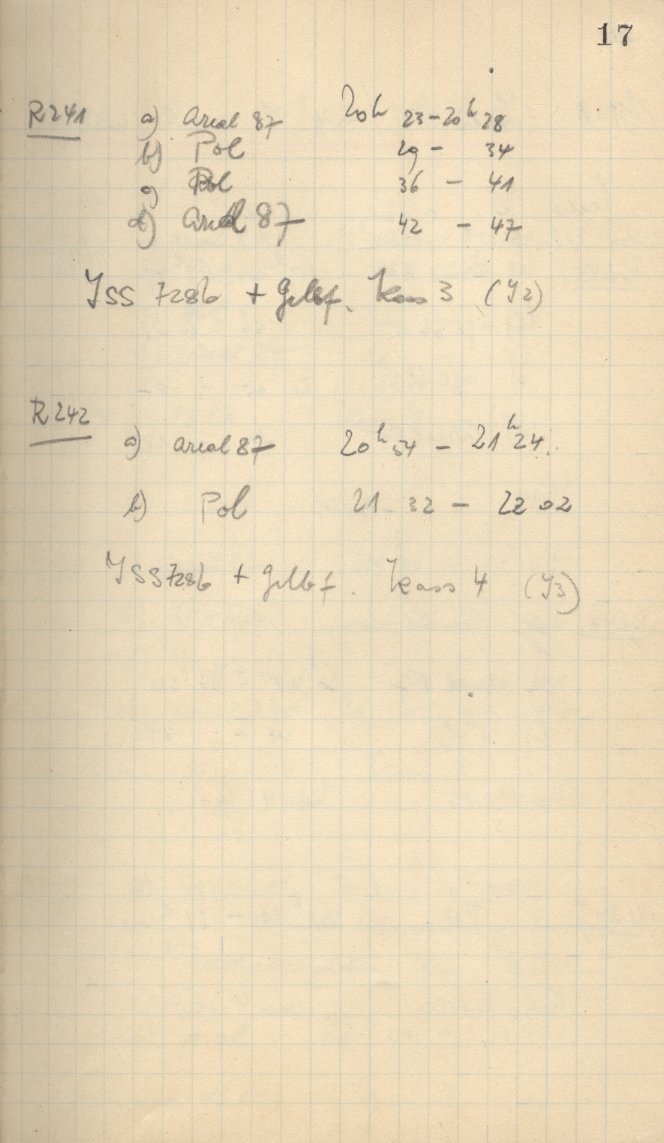 17
R241 a) Areal 87 20h 23-20h 28
b) Pol 29 - 34
c) Pol 36 - 41
d) Areal 87 42 - 47
ISS 728b + Gelbf. Kass 3 (Y2)
R242
a) Areal 87 20h 54 - 21h 24.
b) Pol 21 32 - 22 02
ISS 728b + Gelbf. Kass 4 (Y3)